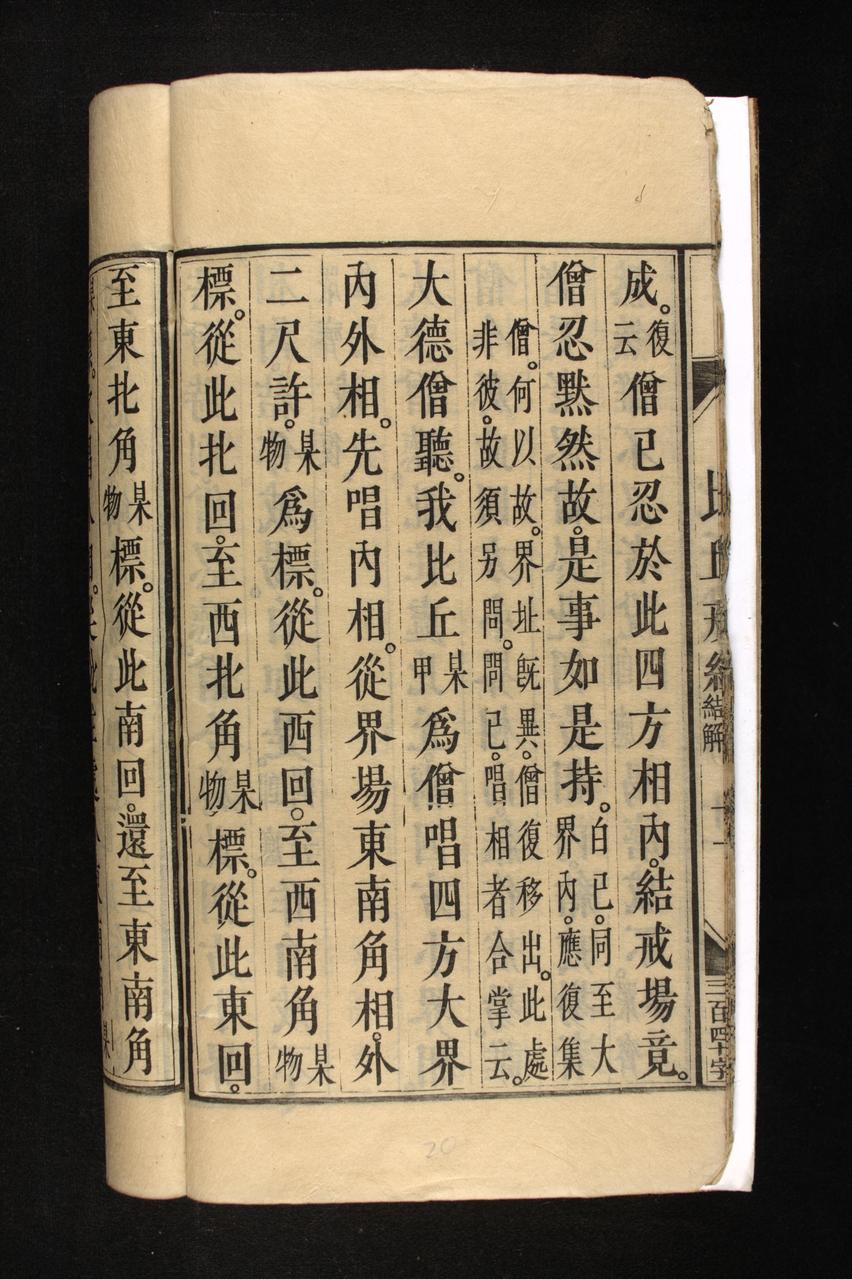 成。復云僧已忍於此四方相內。結戒場竟。
僧忍默然故。是事如是持。白已。同至大界內。應復集
僧。何以故。界址旣異。僧復移出。此處非彼。故須另問。問已。唱相者合掌云。
大德僧聽。我比丘某甲爲僧唱四方大界
內外相。先唱內相。從界場東南角相。外
二尺許。某物爲標。從此西回。至西南角某物
標。從此北回。至西北角某物標。從此東回。
至東北角某物標。從此南回。還至東南角
結解
三百四十字
20